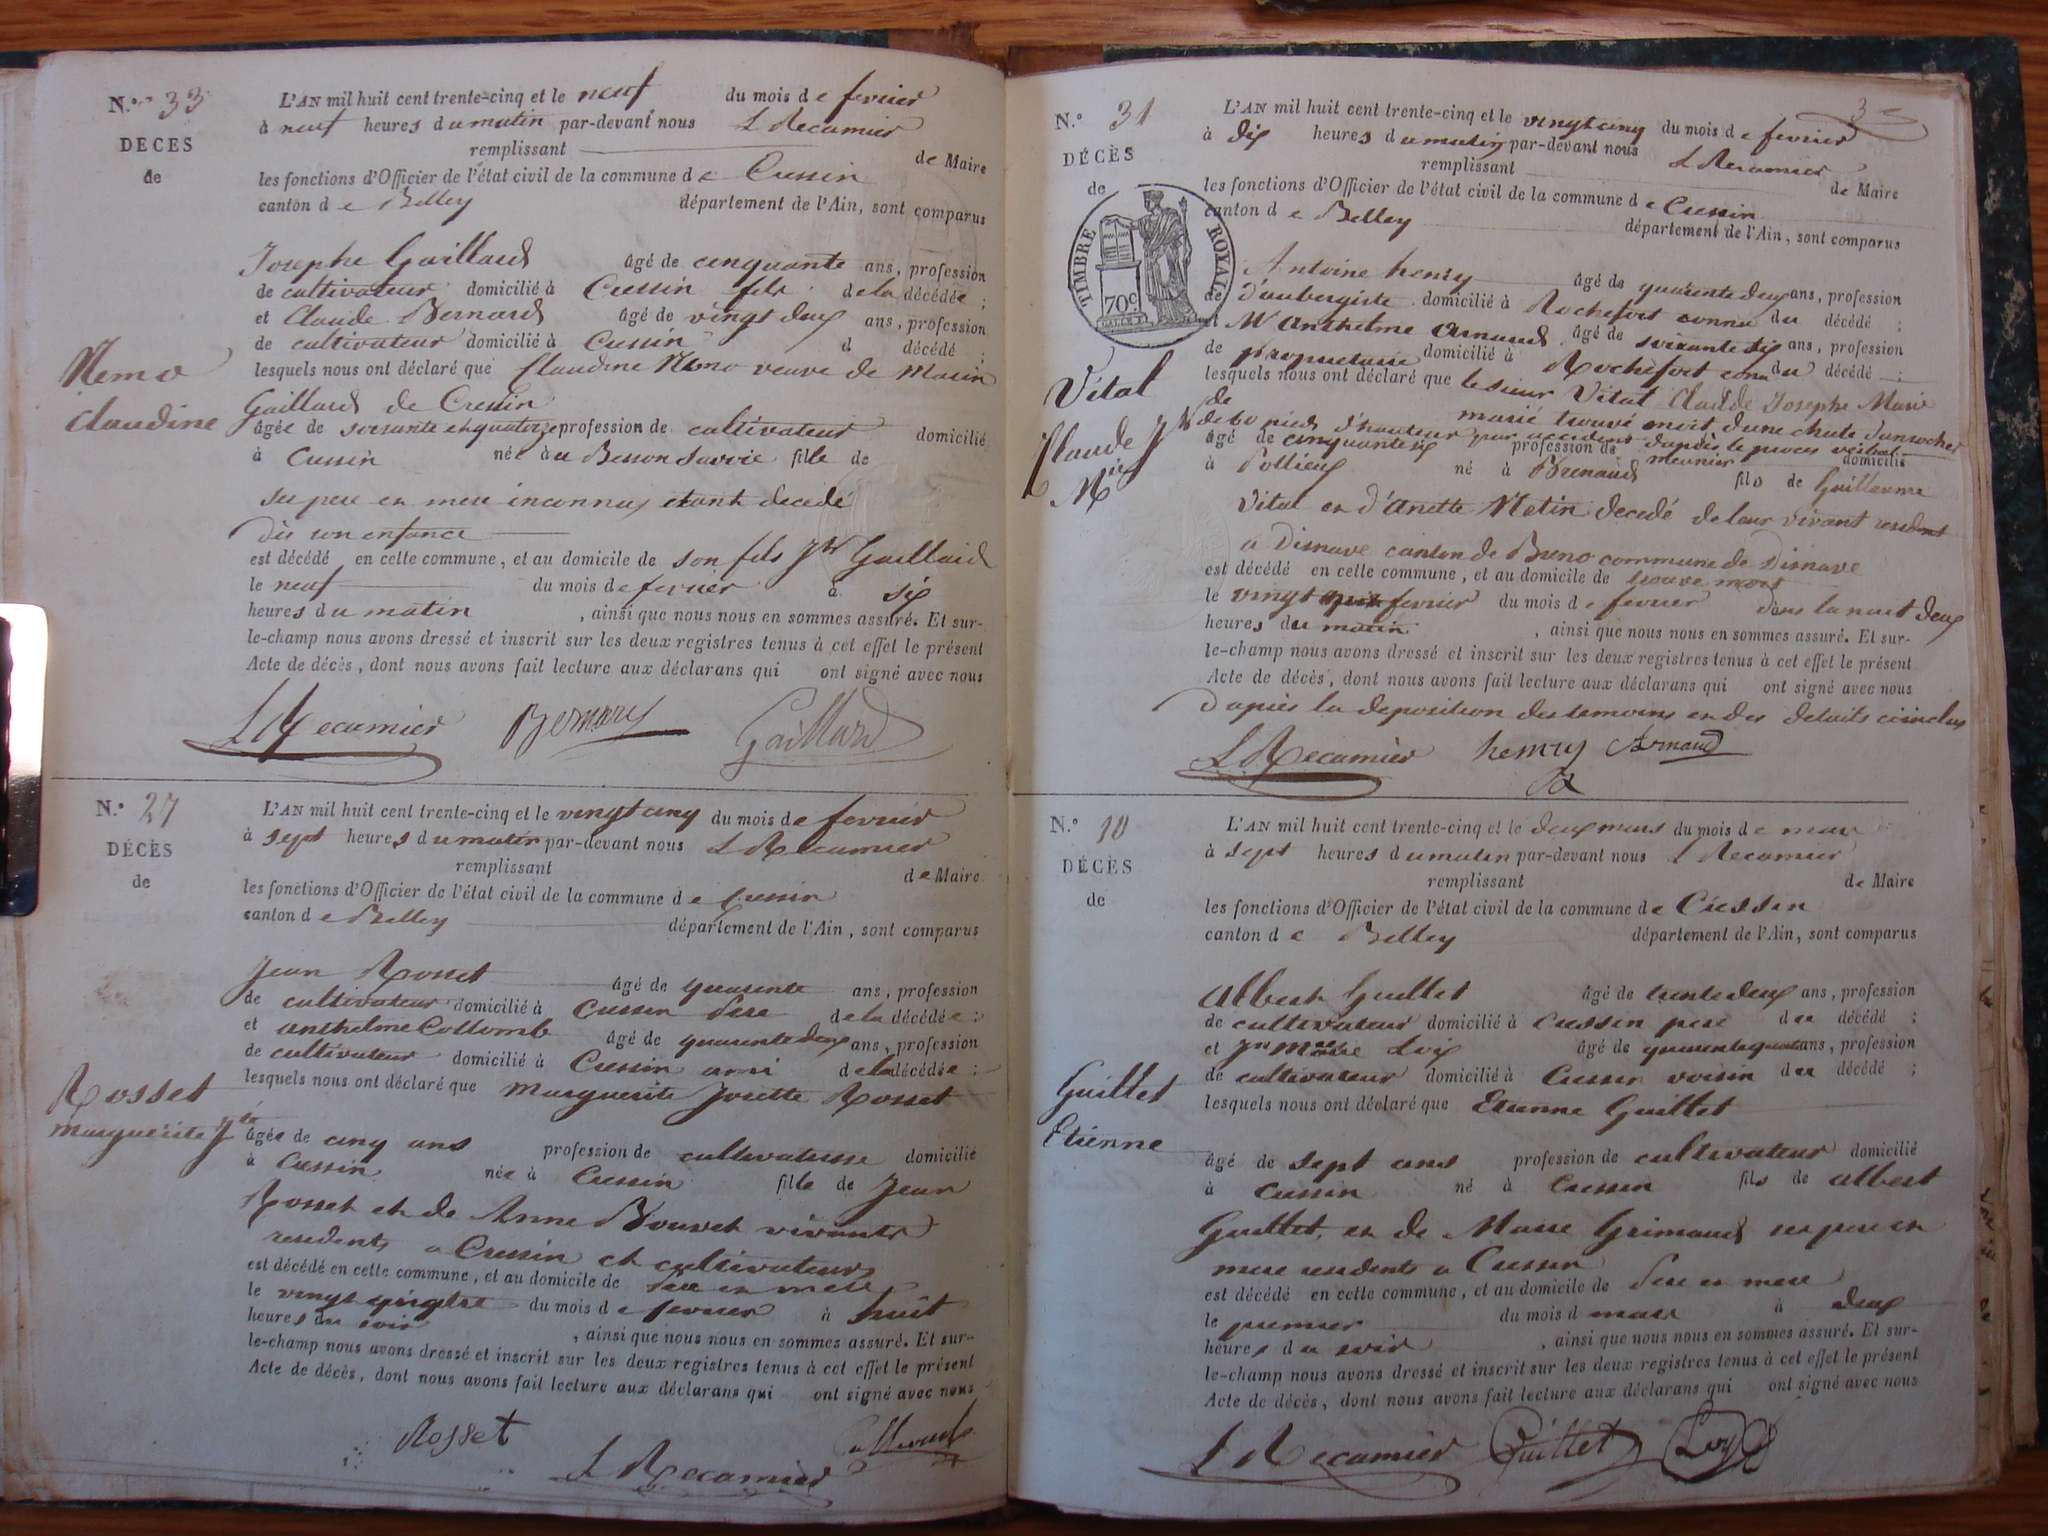 N.° 33
DÉCÈS
de
Nemo
Claudine
L'AN mil huit cent trente-cinq et le neuf du mois de fevrier
à neuf heures du matin par-devant nous L Recamier
remplissant de Maire
les fonctions d'Officier de l'état civil de la commune de Cressin
canton de Belley département de l'Ain, sont comparus
Josephe Gaillard âgé de cinquante ans, profession
de cultivateur domicilié à Cressin fils de la décédée ;
et Claude Bernard âgé de vingt deux ans, profession
de cultivateur domicilié à Cressin d décédé ;
lesquels nous ont déclaré que Claudine Nemo veuve de Marin
Gaillard de Cressin
âgée de soixante et quatorze profession de cultivateur domicilié
à Cressin née à Besson Savoie fille de
ses pere et mere inconnus étant decedé
dès son enfance
est décédé en cette commune, et au domicile de son fils Jh Gaillard
le neuf du mois de fevrier à six
heures du matin , ainsi que nous nous en sommes assuré. Et sur-
le-champ nous avons dressé et inscrit sur les deux registres tenus à cet effet le présent
Acte de décès, dont nous avons fait lecture aux déclarans qui ont signé avec nous
L Recamier Bernard Gaillard
N.° 27
DÉCÈS
de
Rosset
marguerite Jte
L'AN mil huit cent trente-cinq et le vingt cinq du mois de fevrier
à sept heures du matin par-devant nous L Recamier
remplissant de Maire
les fonctions d'Officier de l'état civil de la commune de Cressin
canton de Belley département de l'Ain, sont comparus
Jean Rosset âgé de quarente ans, profession
de cultivateur domicilié à Cressin Pere de la décédée ;
et anthelme Collomb âgé de quarente deux ans, profession
de cultivateur domicilié à Cressin ami de la décédée ;
lesquels nous ont déclaré que marguerite Josette Rosset
âgée de cinq ans profession de cultivateur domicilié
à Cressin née à Cressin fille de Jean
Rosset et de Anne Bouvet vivants
residents a Cressin et cultivateurs
est décédé en cette commune, et au domicile de Pere et mere
le vingt quatre du mois de fevrier à huit
heures du soir , ainsi que nous nous en sommes assuré. Et sur-
le-champ nous avons dressé et inscrit sur les deux registres tenus à cet effet le présent
Acte de décès, dont nous avons fait lecture aux déclarans qui ont signé avec nous
Rosset Collomb
L Recamier
3
N.° 31
DÉCÈS
de
TIMBRE ROYAL
70c
Vital
Claude Jh
Mie
L'AN mil huit cent trente-cinq et le vingt cinq du mois de fevrier
à dix heures du matin par-devant nous L Recamier
remplissant de Maire
les fonctions d'Officier de l'état civil de la commune de Cressin
canton de Belley département de l'Ain, sont comparus
Antoine henry âgé de quarente deux ans, profession
de d'aubergiste domicilié à Rochefort connu du décédé ;
et Mr anthelme Arnaud âgé de soixante dix ans, profession
de proprietaire domicilié à Rochefort connu du décédé ;
lesquels nous ont déclaré que le sieur Vital Claude Josephe Marie
marié trouvé mort d'une chute d'un rocher
de 60 pieds d'hauteur par accident d'après le proces verbal
âgé de cinquante six profession de meunier domicilié
à Pollieu né à Brenaud fils de Guillaume
Vital et d'Anette Metin decedé de leur vivant resident
a Disnave canton de Breno commune de Disnave
est décédé en cette commune, et au domicile de trouvé mort
le vingt fevrier du mois de fevrier dans la nuit deux
heures du matin , ainsi que nous nous en sommes assuré. Et sur-
le-champ nous avons dressé et inscrit sur les deux registres tenus à cet effet le présent
Acte de décès, dont nous avons fait lecture aux déclarans qui ont signé avec nous
d'après la deposition des temoins et des details
L Recamier henry Arnaud
N.° 10
DÉCÈS
de
Guillet
Etienne
L'AN mil huit cent trente-cinq et le deux mars du mois de mars
à sept heures du matin par-devant nous L Recamier
remplissant de Maire
les fonctions d'Officier de l'état civil de la commune de Cressin
canton de Belley département de l'Ain, sont comparus
Albert Guillet âgé de trente deux ans, profession
de cultivateur domicilié à Cressin pere du décédé ;
et Jn Marie Loix âgé de quarente quatre ans, profession
de cultivateur domicilié à Cressin voisin du décédé ;
lesquels nous ont déclaré que Etienne Guillet
âgé de sept ans profession de cultivateur domicilié
à Cressin né à Cressin fils de albert
Guillet et de Marie Grimaud ses pere et
mere residents a Cressin
est décédé en cette commune, et au domicile de Pere et mere
le premier du mois d mars à deux
heures du soir , ainsi que nous nous en sommes assuré. Et sur-
le-champ nous avons dressé et inscrit sur les deux registres tenus à cet effet le présent
Acte de décès, dont nous avons fait lecture aux déclarans qui ont signé avec nous
L Recamier Guillet Loy